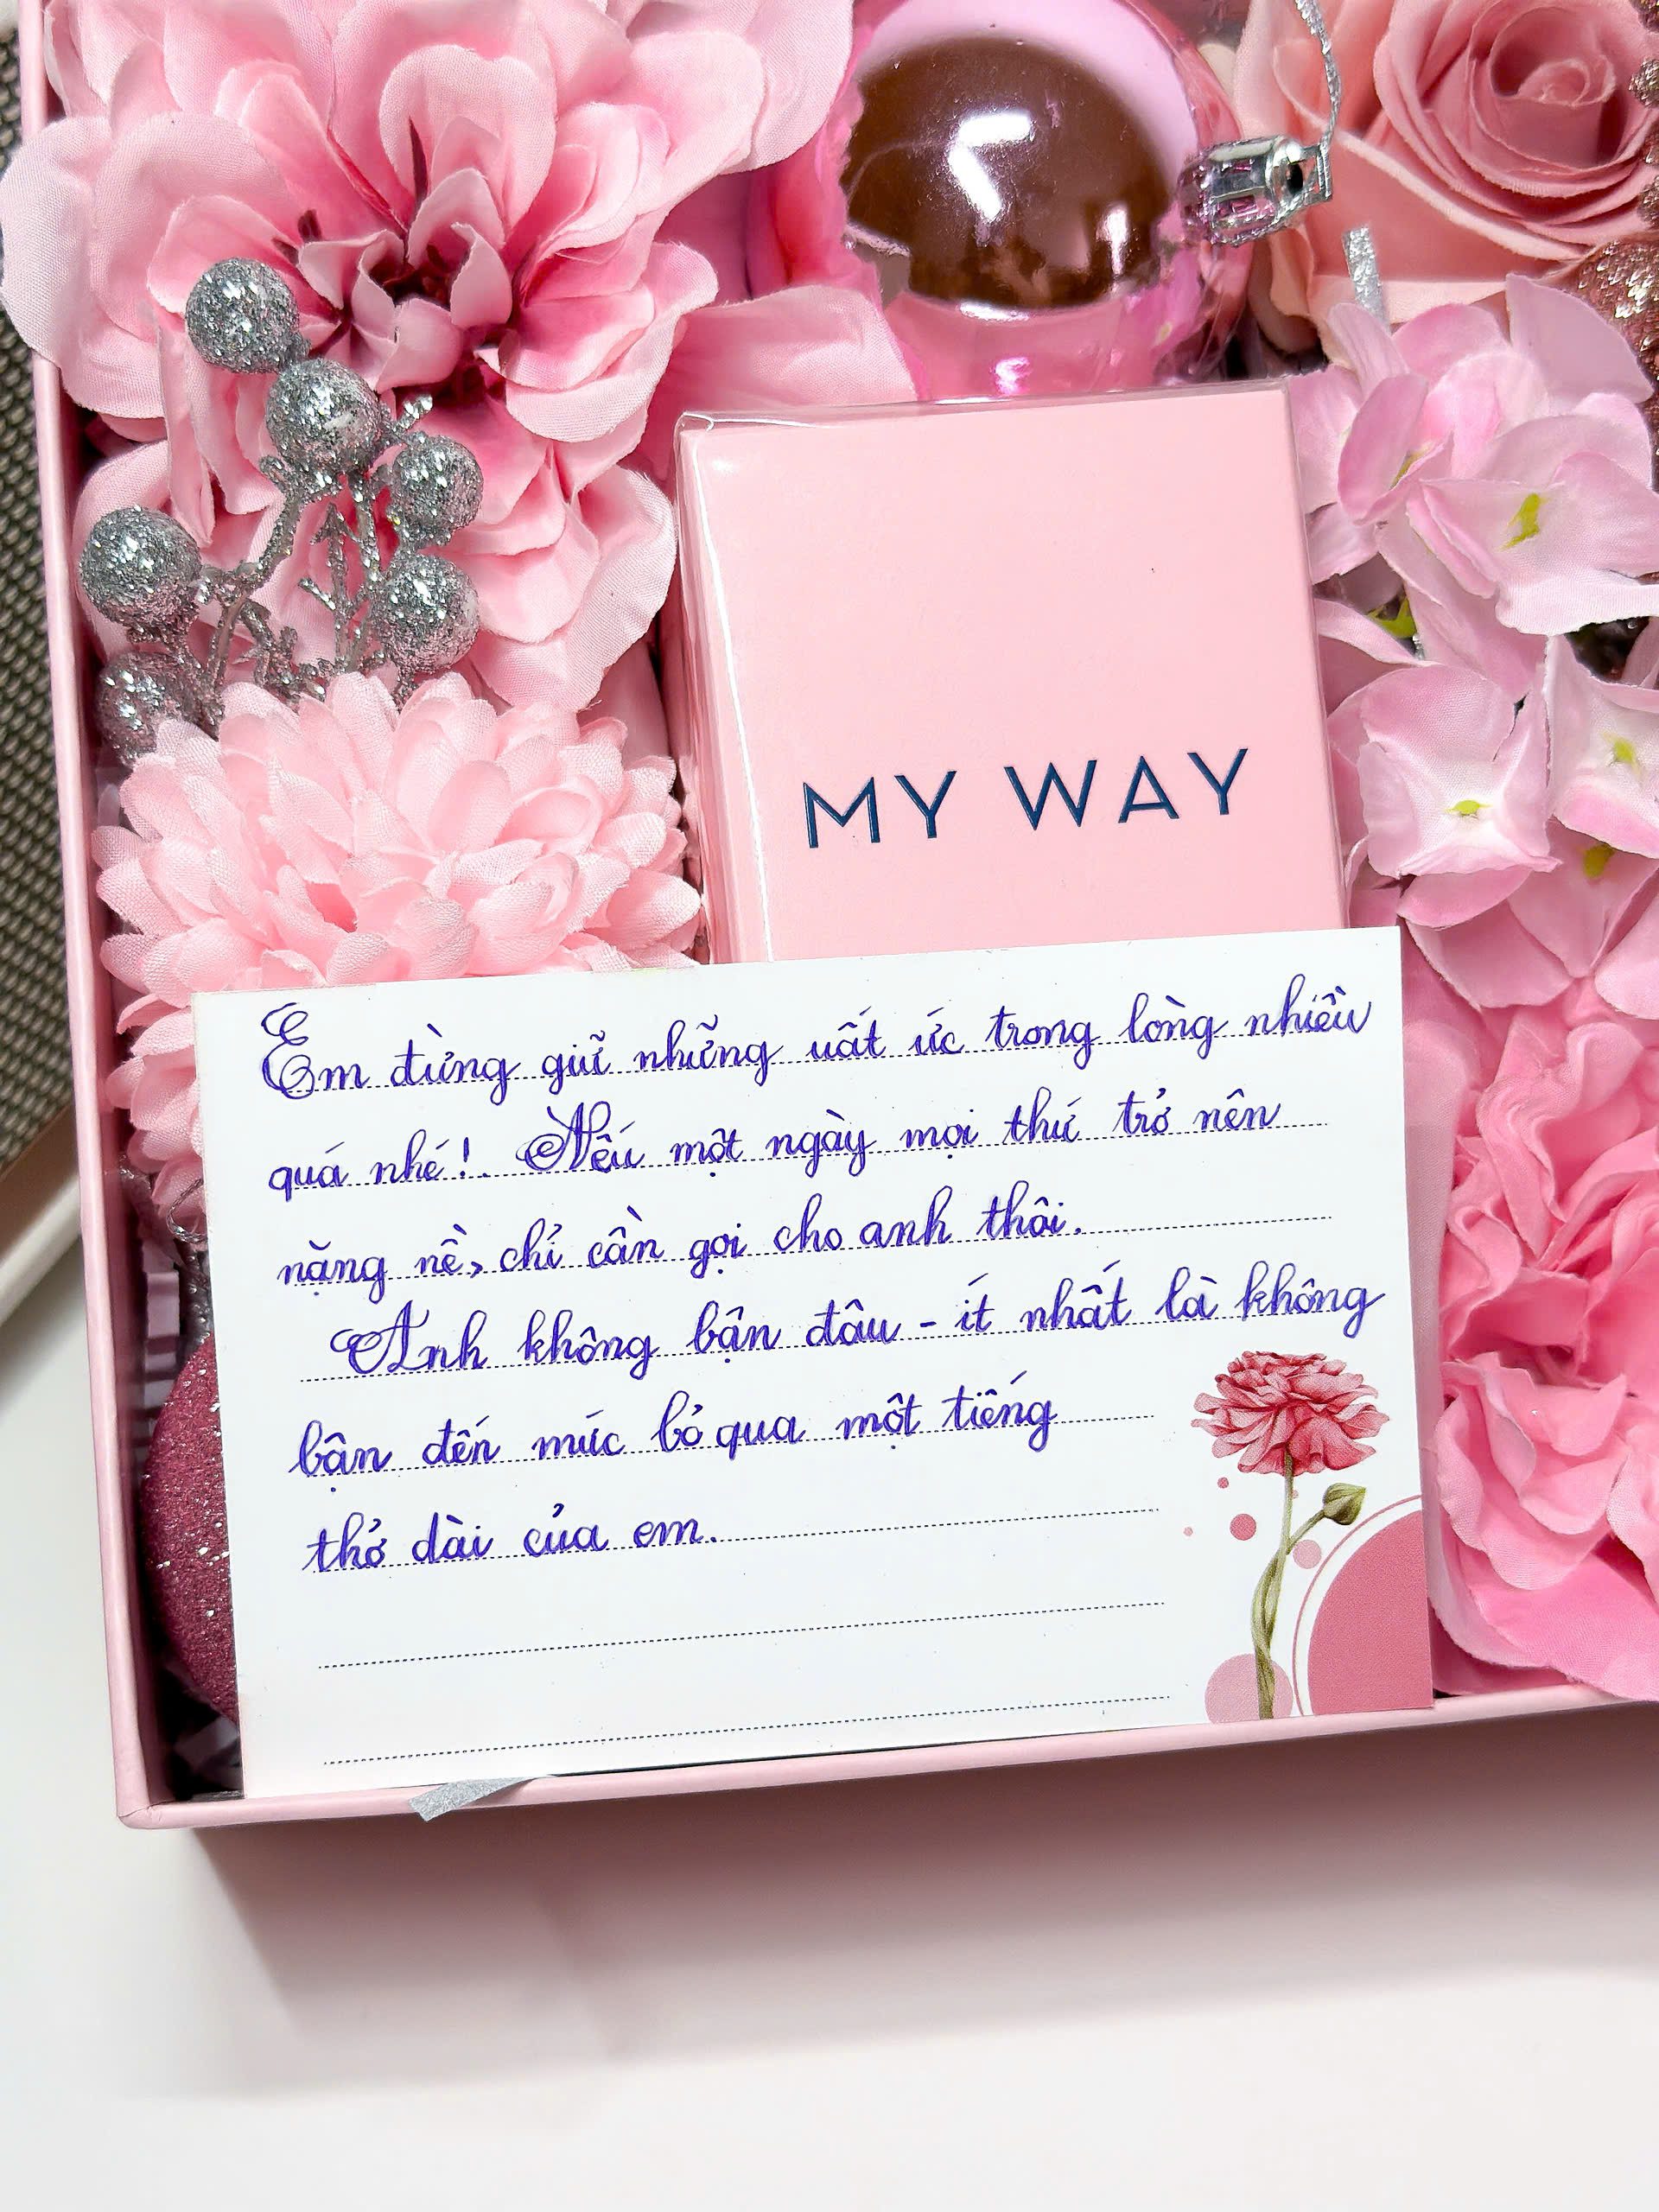 MY WAY
Em đừng giữ những uất ức trong lòng nhiều
quá nhé! Nếu một ngày mọi thứ trở nên
nặng nề, chỉ cần gọi cho anh thôi.
Anh không bận đâu - ít nhất là không
bận đến mức bỏ qua một tiếng
thở dài của em.